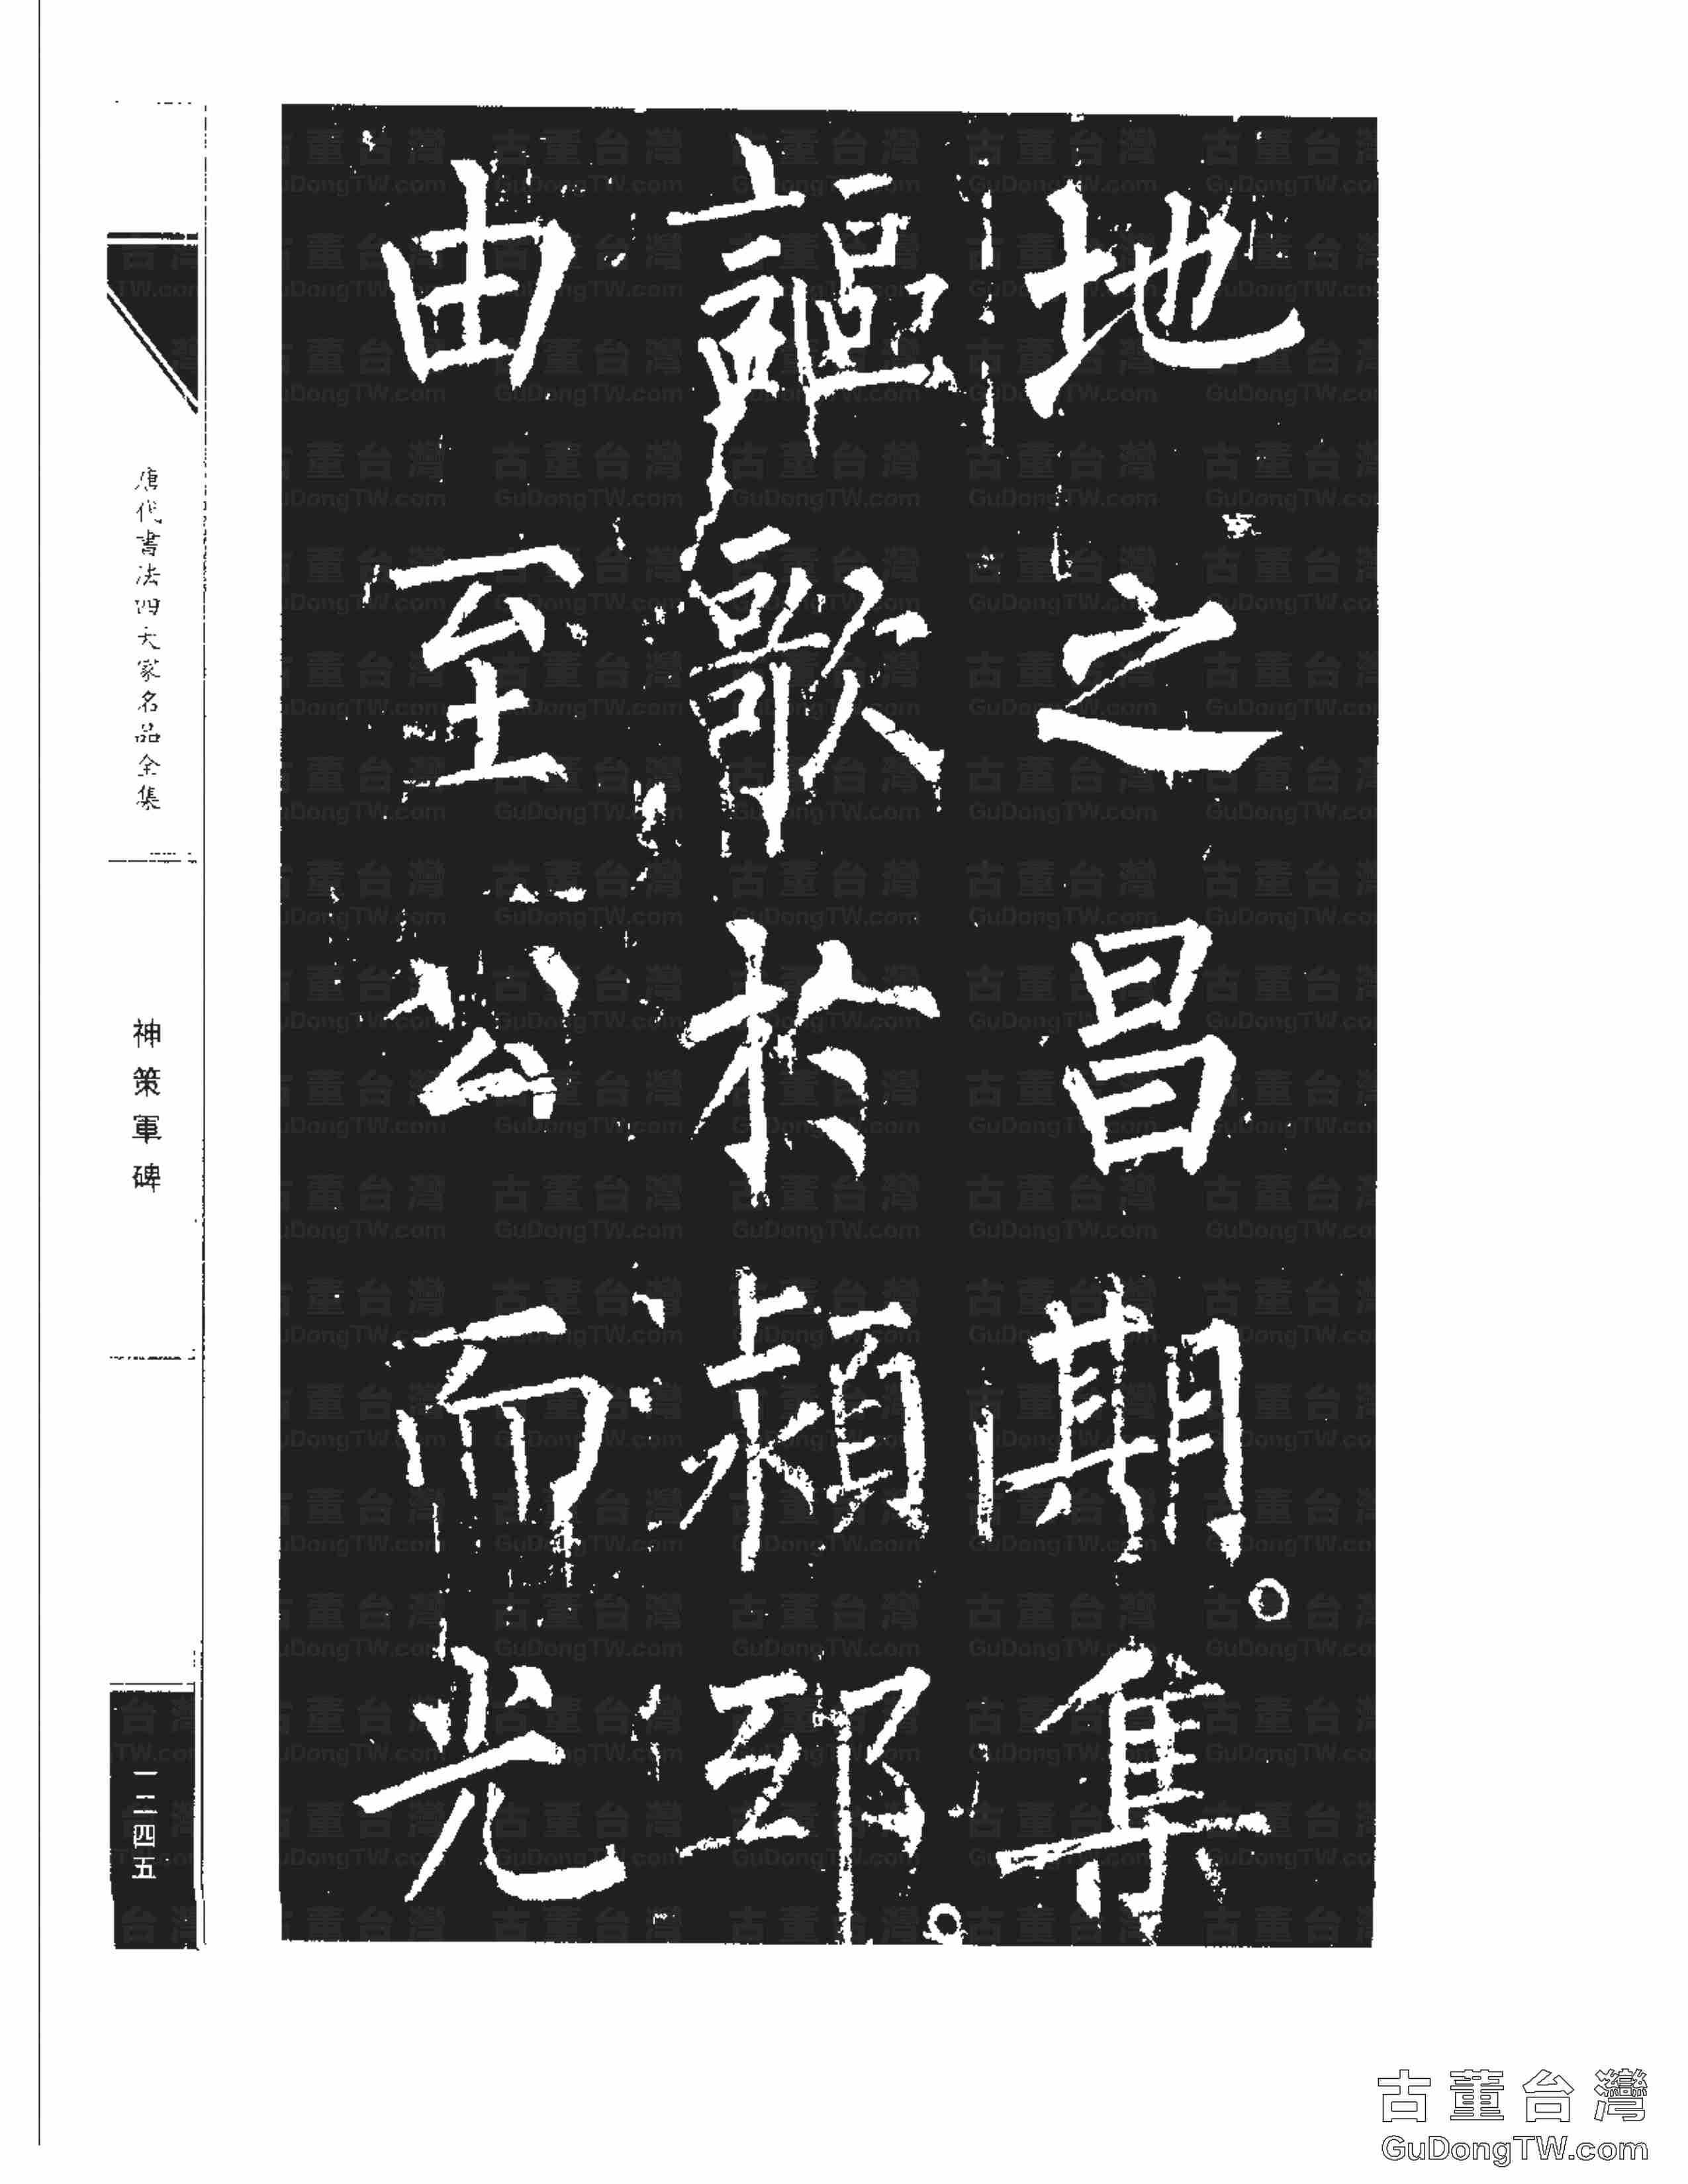 地之昌期。集
謳歌於潁邸。
由至公而光
唐代書法四大家名品全集
神策軍碑
一二四五
古董台灣
GuDongTW.com